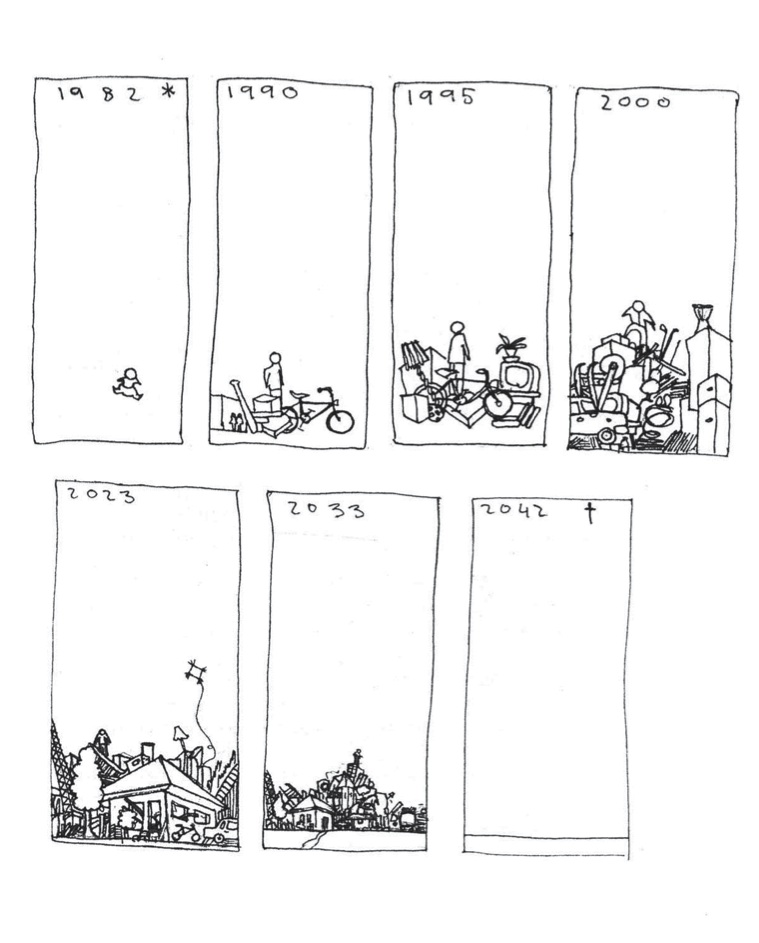 1982 *
1990
1995
2000
2023
2033
2042 †